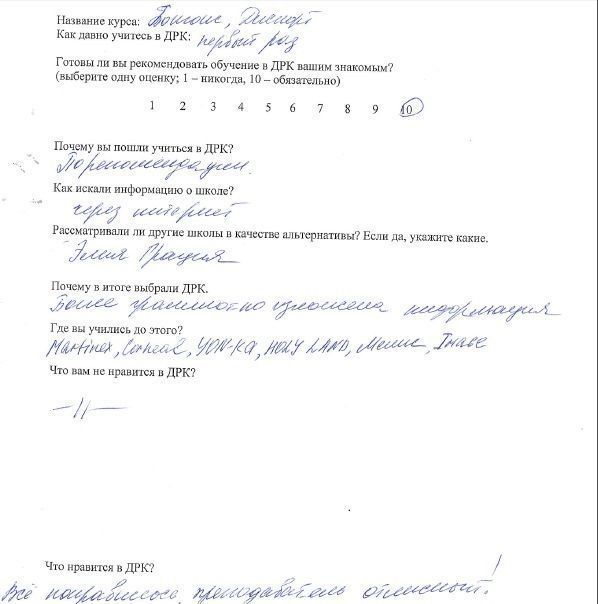 Название курса: Ботокс, Диспорт
Как давно учитесь в ДРК: первый раз
Готовы ли вы рекомендовать обучение в ДРК вашим знакомым?
(выберите одну оценку; 1 – никогда, 10 – обязательно)
1 2 3 4 5 6 7 8 9 10
Почему вы пошли учиться в ДРК?
По рекомендации.
Как искали информацию о школе?
через интернет
Рассматривали ли другие школы в качестве альтернативы? Если да, укажите какие.
Грация
Почему в итоге выбрали ДРК.
Более грамотно изложена информация
Где вы учились до этого?
Martinex, YON-KA, HOLY LAND,
Что вам не нравится в ДРК?
–//–
Что нравится в ДРК?
Всё понравилось, преподаватель отличный!